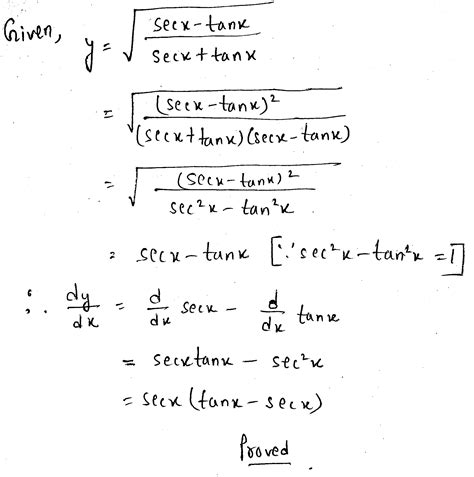 Given, y = √((secx - tanx)/(secx + tanx))
= √((secx - tanx)²/((secx + tanx)(secx - tanx)))
= √((secx - tanx)²/(sec²x - tan²x))
= secx - tanx [∵ sec²x - tan²x = 1]
∴ dy/dx = d/dx secx - d/dx tanx
= secxtanx - sec²x
= secx (tanx - secx)
Proved.